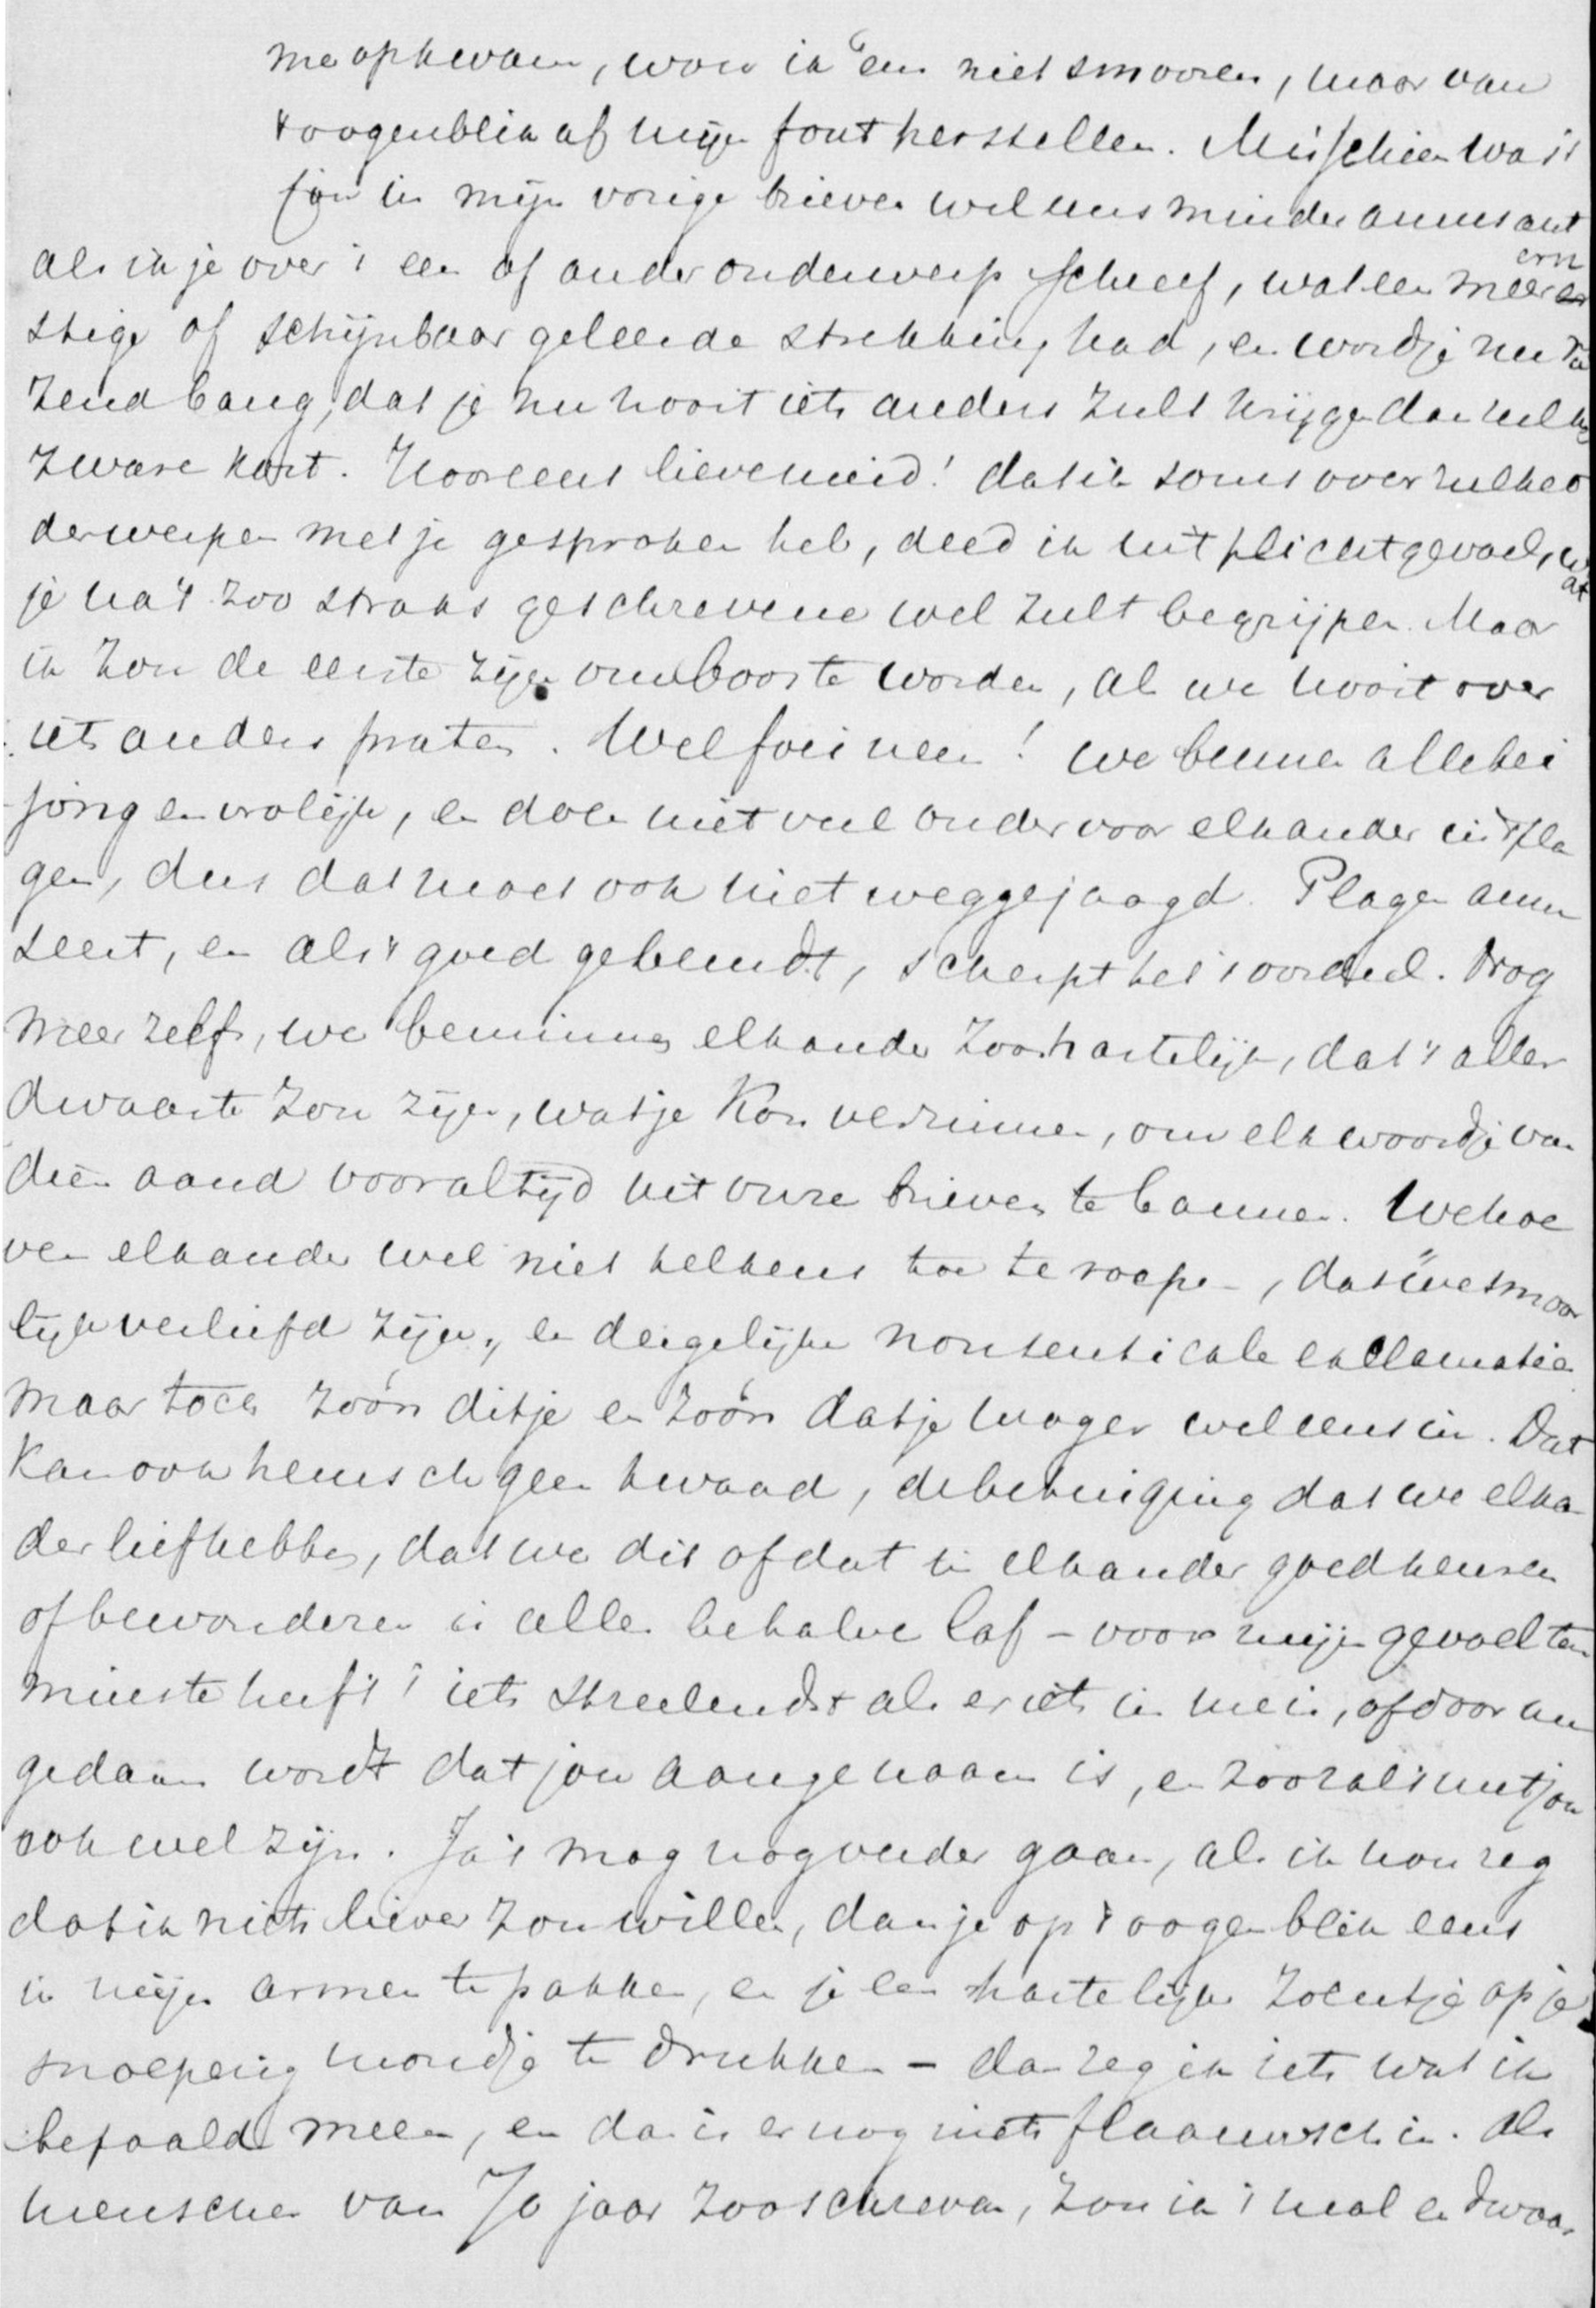 me opkwam, wou ik 'em niet smooren, maar van
't oogenblik af mijn fout herstellen. Misschien was 't
jou in mijn vorige brieven wel eens minder amusant
als ik je over 't een of ander onderwerp schreef, wat een meer ern
stige of schijnbaar geleerde strekking had, en word je nu ra
zend bang, dat je nu nooit iets anders zult krijgen dan zulke
zware kost. Hoor eens lieve meid! dat ik soms over zulke o
derwerpen met je gesproken heb, deed ik uit plichtgevoel, wat
je na 't zoo straks geschrevene wel zult begrijpen. Maar
ik zou de eerste zijn om boos te worden, als we nooit over
iets anders praten. Wel foei neen! we bennen allebei
jong en vrolijk, en doen niet veel onder voor elkander in 't pla
gen, dus dat moet ook niet weggejaagd. Plagen amu
seert, en als 't goed gebeurdt, scherpt het 't oordeel. Nog
meer zelfs, we beminnen elkander zoo hartelijk, dat 't aller
dwaaste zou zijn, wat je kon verzinnen, om elk woordje van
dien aard voor altijd uit onze brieven te bannen. We hoe
ven elkander wel niet telkens toe te roepen, dat "we smoor
lijk verliefd zijn," en dergelijke nonsensicale exclamatiën
maar toch zóó'n ditje en zóó'n datje mogen wel eens in. Dat
kan ook heusch geen kwaad, de betuiging dat we elka
der liefhebben, dat we dit of dat in elkander goedkeuren
of bewonderen is alles behalve laf – voor mijn gevoel ten
minste heeft 't iets streelends als er iets in mij, of door mij
gedaan wordt dat jou aangenaam is, en zoo zal 't met jou
ook wel zijn. Ja 't mag nog verder gaan, als ik nou zeg
dat ik niets liever zou willen, dan je op 't oogenblik eens
in mijn armen te pakken, en je een hartelijk zoentje op je
snoeperig mondje te drukken – dan zeg ik iets wat ik
bepaald meen, en dan is er nog niets flaauwsch in. Als
menschen van 70 jaar zoo schreven, zou ik 't mal en dwaas